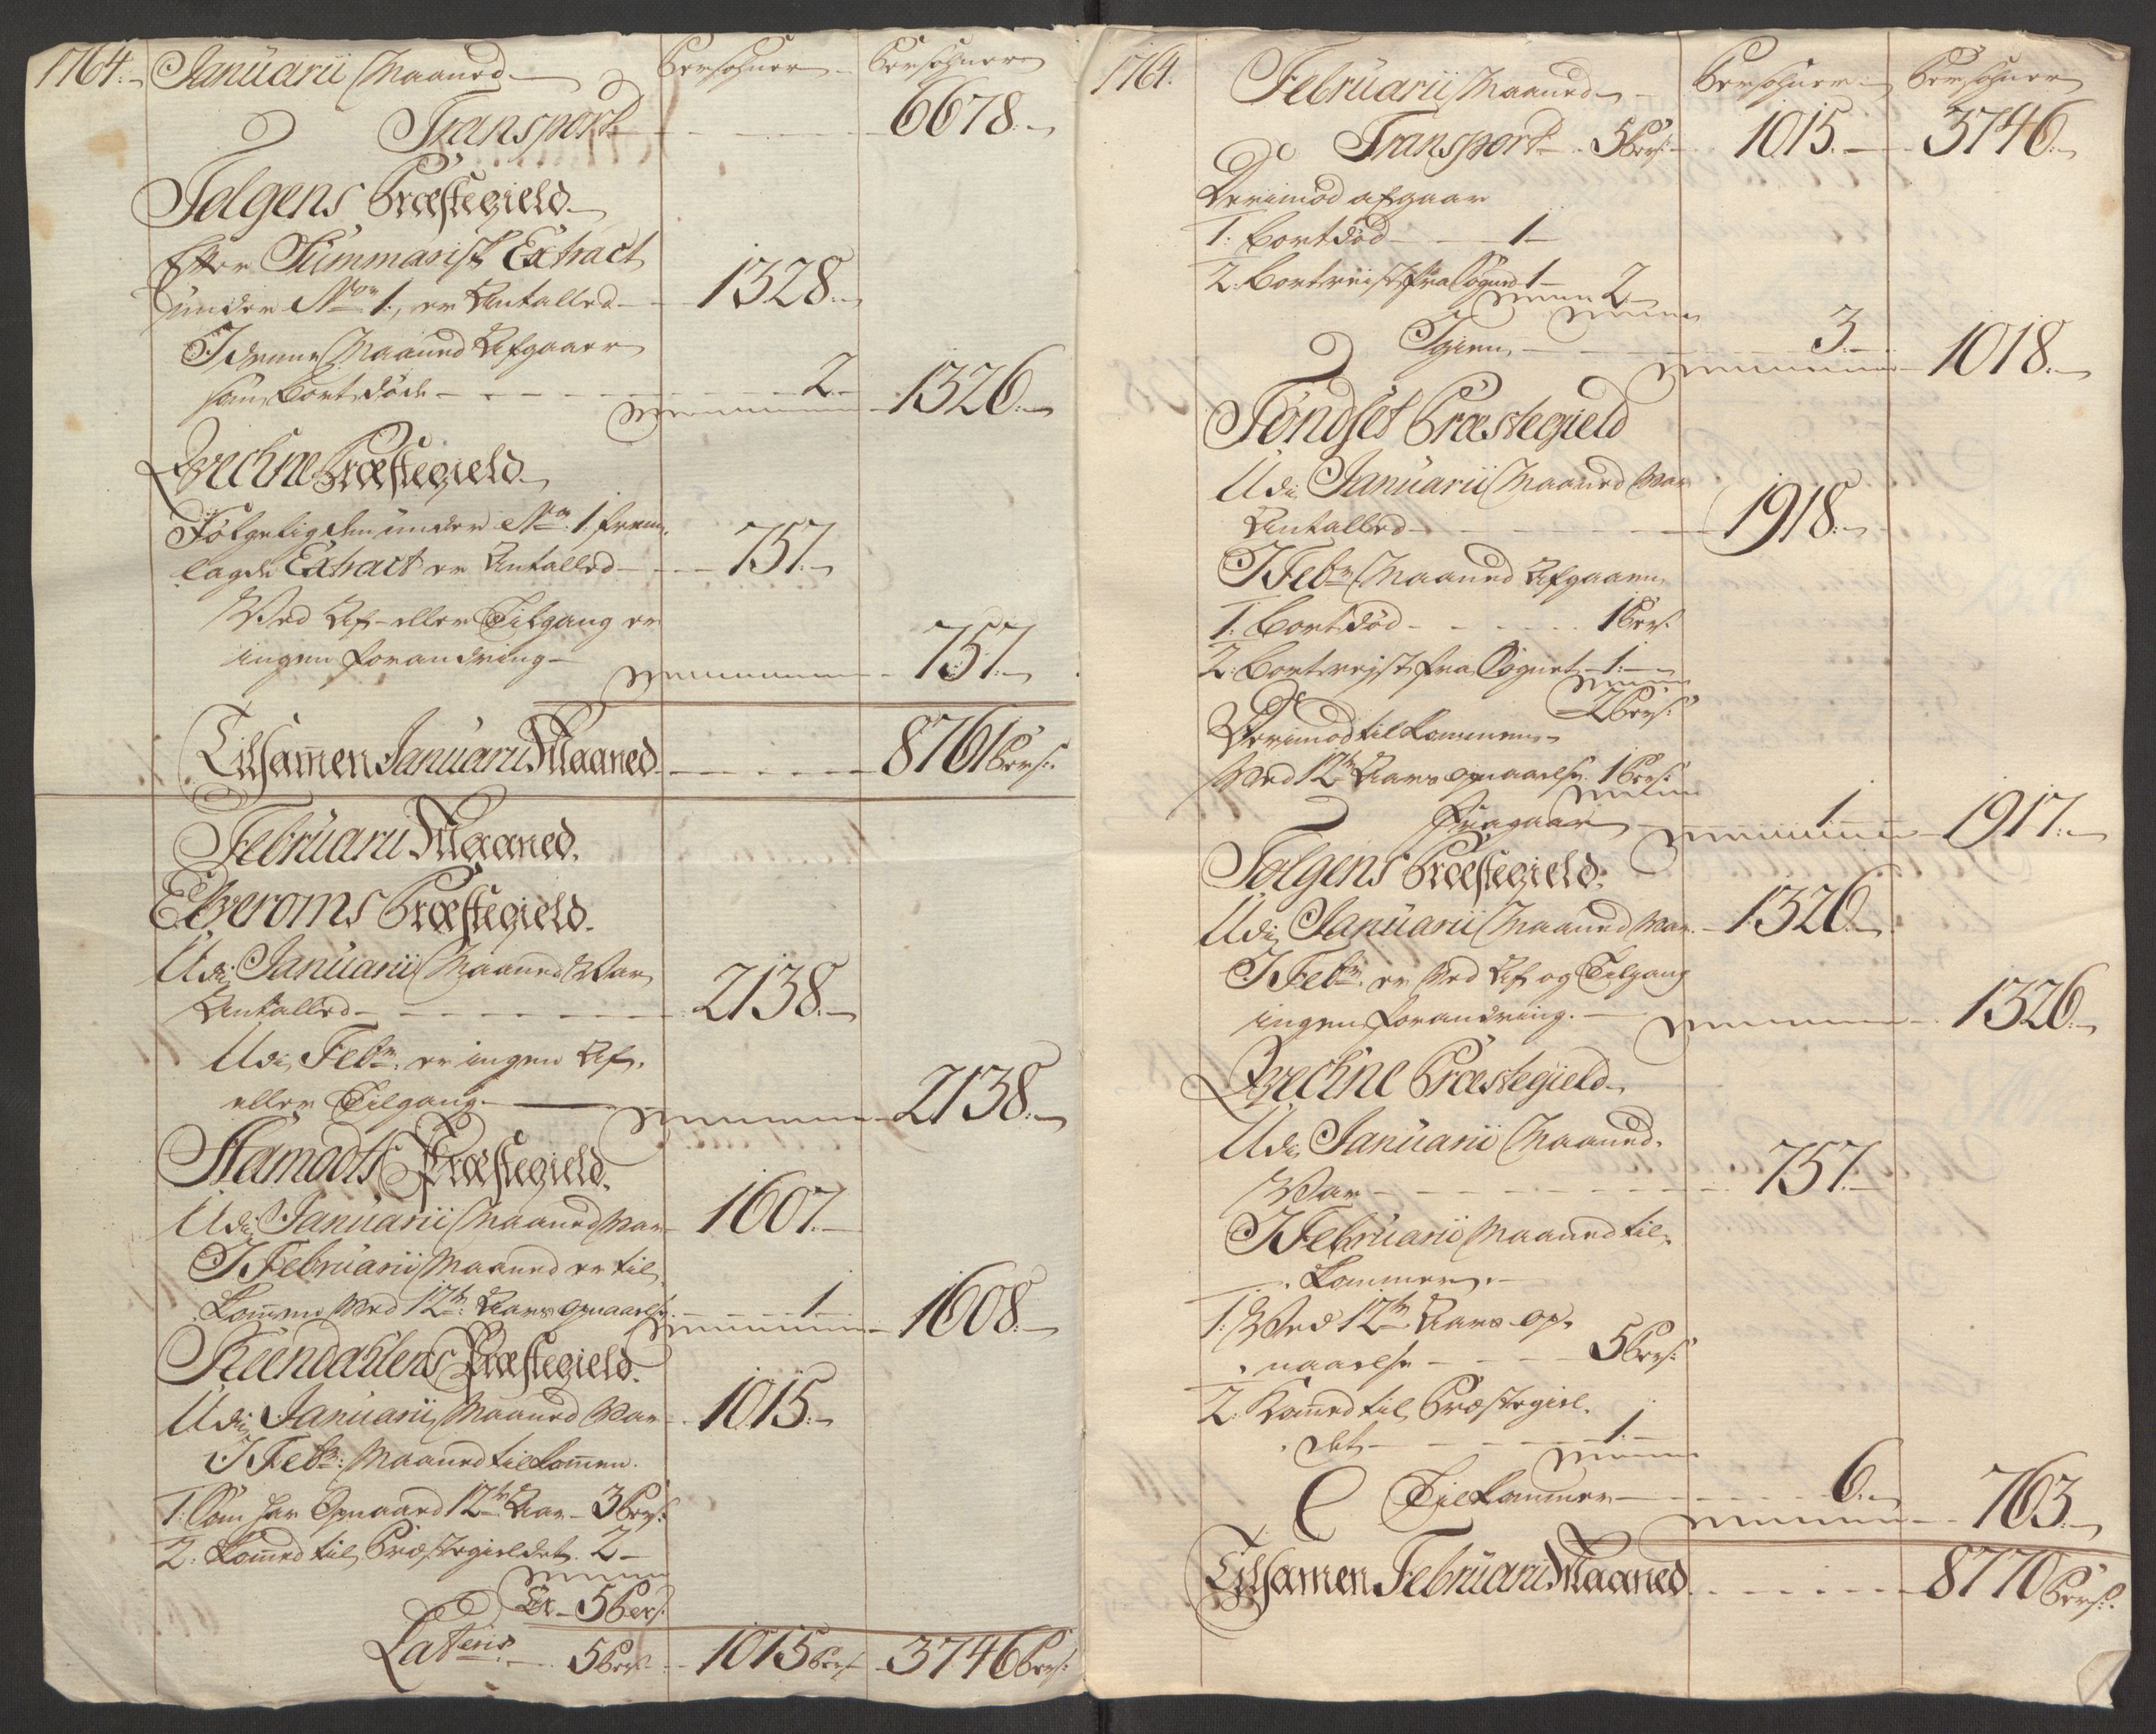 1764. Januarii Maaned Persohner Persohner
Transport 6678.
Tolgens Præstegield
Efter Summarisk Extract
under No. 1., er Antalled 1328.
I denne Maaned Afgaaer
som bortdøde 2. 1326.
Qvechne Præstegield
Følgelig den under No. 1. frem-
lagde Extract er Antalled 757.
Ved Af- eller Tilgang er
ingen forandring 757.
Tilsam̄en Januarii Maaned 8761 Pers:
Februarii Maaned.
Elveroms Præstegield.
Udi Januarii Maaned Var
Antalled 2138.
Udi Febr. er ingen Af-
eller Tilgang 2138.
Aamodts Præstegield.
Udi Januarii Maaned Var 1607.
I Februarii Maaned er til-
kom̄en Ved 12te Aars opnaaelse 1 1608.
Reendahlens Præstegield.
Udi Januarii Maaned Var 1015.
I Febr: Maaned tilkom̄en.
1. Som har Opnaaed 12te Aar 3 Pers:
2. Kom̄ed til Præstegieldet 2
Er 5 Pers:
Lateris 5 Pers: 1015 Pers: 3746 Pers:
1764. Februarii Maaned Persohner Persohner
Transport 5 Pers: 1015. 3746.
Derimod afgaar
1. bortdød 1
2. bortreist fra Sognet 1
2
Igien 3. 1018.
Tøndset Præstegield
Udi Januarii Maaned Var
Antalled 1918.
I Febr. Maaned Afgaaen
1. Bortdød 1 Pers.
2. Bortreist fra Sognet 1.
2 Pers:
Derimod tilkommen
Ved 12te Aars opnaaelse 1 Pers:
Fragaar 1 1917.
Tolgens Præstegield.
Udi Januarii Maaned Var 1326.
I Febr. er Ved Af og Tilgang
ingen forandring. 1326.
Qvechne Præstegield.
Udi Januarii Maaned
Var 757.
I Februarii Maaned til-
kommen.
1. Ved 12te Aars op-
naaelse 5 Pers:
2. Kom̄ed til Præstegiel-
det 1.
Tilkommer 6. 763.
Tilsamen Februarii Maaned 8770 Pers: